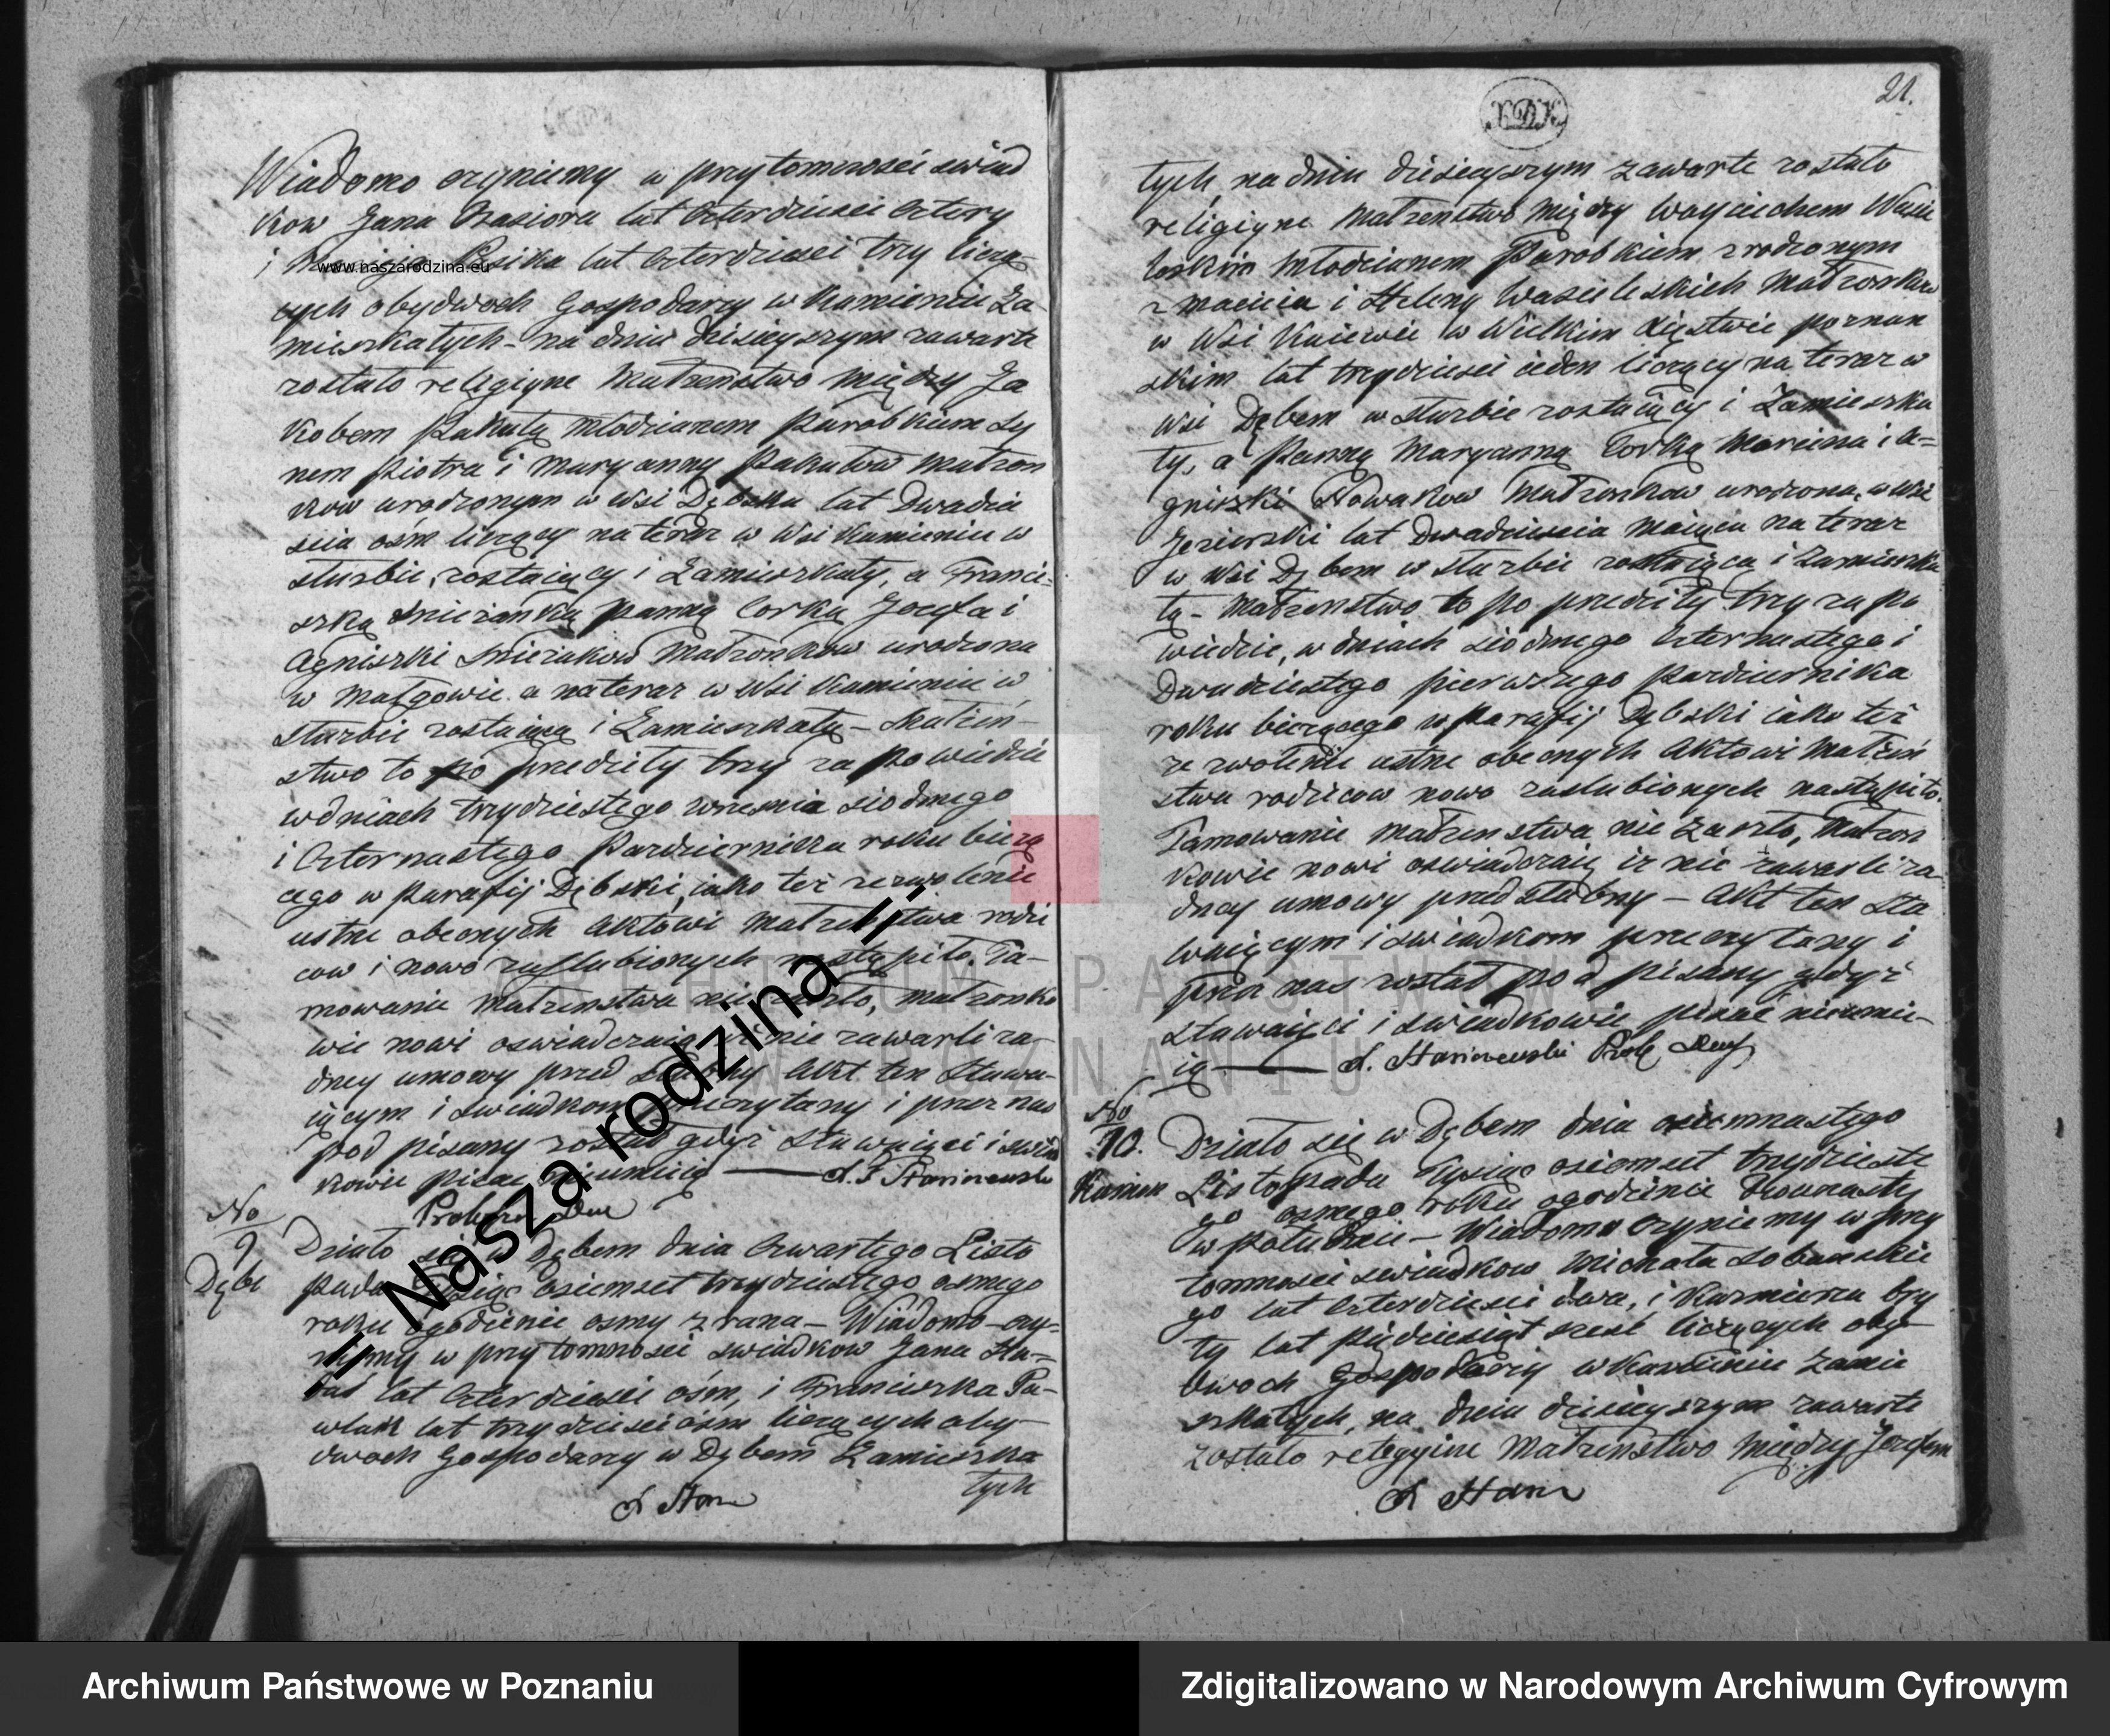 Wiadomo czyniemy w przytomności świad
kow Jana lat czterdzieści cztery
i lat czterdzieści trzy liczą-
cych obydwoch Gospodarzy w Kamieniu Za-
mieszkałych - na dniu dzisieyszym zawarte
zostało religijne Małżeństwo między Ja
kobem Pakułą Młodzianem Parobkiem Sy
nem Piotra i Maryanny Pakułow Małżon
kow urodzonym w Wsi Dębsku lat Dwadzie
ścia ośm liczący na teraz w Wsi Kamieniu w
służbie zostaiący i Zamieszkały, a Franci-
szką Snieżanką Panną Corką Jozefa i
Agnieszki Snieżakow Małżonkow urodzona
w Małgowie a na teraz w Wsi Kamieniu w
służbie zostaiącą i Zamieszkałą - Małżeń-
stwo to po przedziły trzy zapowiedzie
w dniach trzydziestego września siodmego
i Czternastego Pazdziernika roku bieżą
cego w Parafij Dębski, iako też zezwolenie
ustne obecnych Aktowi Małżeństwa rodzi
cow i nowo zaślubionych nastąpiło. Ta-
mowanie Małżeństwa nie zaszło, małżonko
wie nowi oświadczaią iż nie zawarli ża-
dney umowy przed ślubny Akt ten Stawa-
iącym i świadkom przeczytany i przez nas
pod pisany został gdyż Stawaiący i świad
kowie pisać nieumieią
No
9
Dębe
Działo się w Dębem dnia Czwartego Listo
pada Tysiąc osiemset trzydziestego osmego
roku o godzinie osmy z rana - Wiadomo czy-
niemy w przytomności świadkow Jana
lat Czterdzieści ośm, i Franciszka Pa-
wlak lat trzydzieści ośm liczących oby-
dwoch Gospodarzy w Dębem Zamieszka
tych
21.
XDK
tych, na dniu dzisieyszym zawarte zostało
religijne Małżenstwo między Woyciechem Wasie
leskim Młodzianem Parobkiem zrodzonym
z Macieia i Heleny Wasieleskich Małżonkow
w Wsi Kuiewie w Wielkim Xięstwie poznan
skim lat trzydzieści ieden liczący na teraz w
Wsi Dębem w służbie zostaiący i Zamieszka
ły, a Panną Maryanną Corką Marcina i A-
gnieszki Nowakow Małżonkow urodzona w Wsi
Jeziorski lat Dwadzieścia maiąca na teraz
w Wsi Dębem w służbie zostaiącą i Zamieszka
łą - Małżenstwo to po przedziły trzy zapo
wiedzie, w dniach siodmego Czternastego i
Dwudziestego pierwszego Pazdziernika
roku bieżącego w Parafij Dębski iako też
ze zwolenie ustne obecnych Aktowi Małżeń
stwa rodzicow nowo zaślubionych nastąpiło.
Tamowanie Małżenstwa nie zaszło, Małżon
kowie nowi oświadczaią iż nie zawarli ża
dney umowy przed ślubny - Akt ten Sta
waiącym i świadkom przeczytany i
przez nas został pod pisany gdyż
Stawaiący i świadkowie pisać nieumie-
ią
No
10.
Kamien
Działo się w Dębem dnia osiemnastego
Listopada Tysiąc osiemset trzydzieste
go osmego roku o godzinie Dwunasty
w Południe - Wiadomo czyniemy w przy
tomności świadkow Michała Sobanskie
go lat Czterdzieści dwa, i Kazmierza Bry
ty lat Pięćdziesiąt sześć liczących oby-
dwoch Gospodarzy w Kamieniu Zamie
szkałych, na dniu dzisieyszym zawarte
zostało religyine Małżeństwo między Jozefem
www.naszarodzina.eu
:: Nasza rodzina ::
ARCHIWUM PAŃSTWOWE
W POZNANIU
Archiwum Państwowe w Poznaniu
Zdigitalizowano w Narodowym Archiwum Cyfrowym